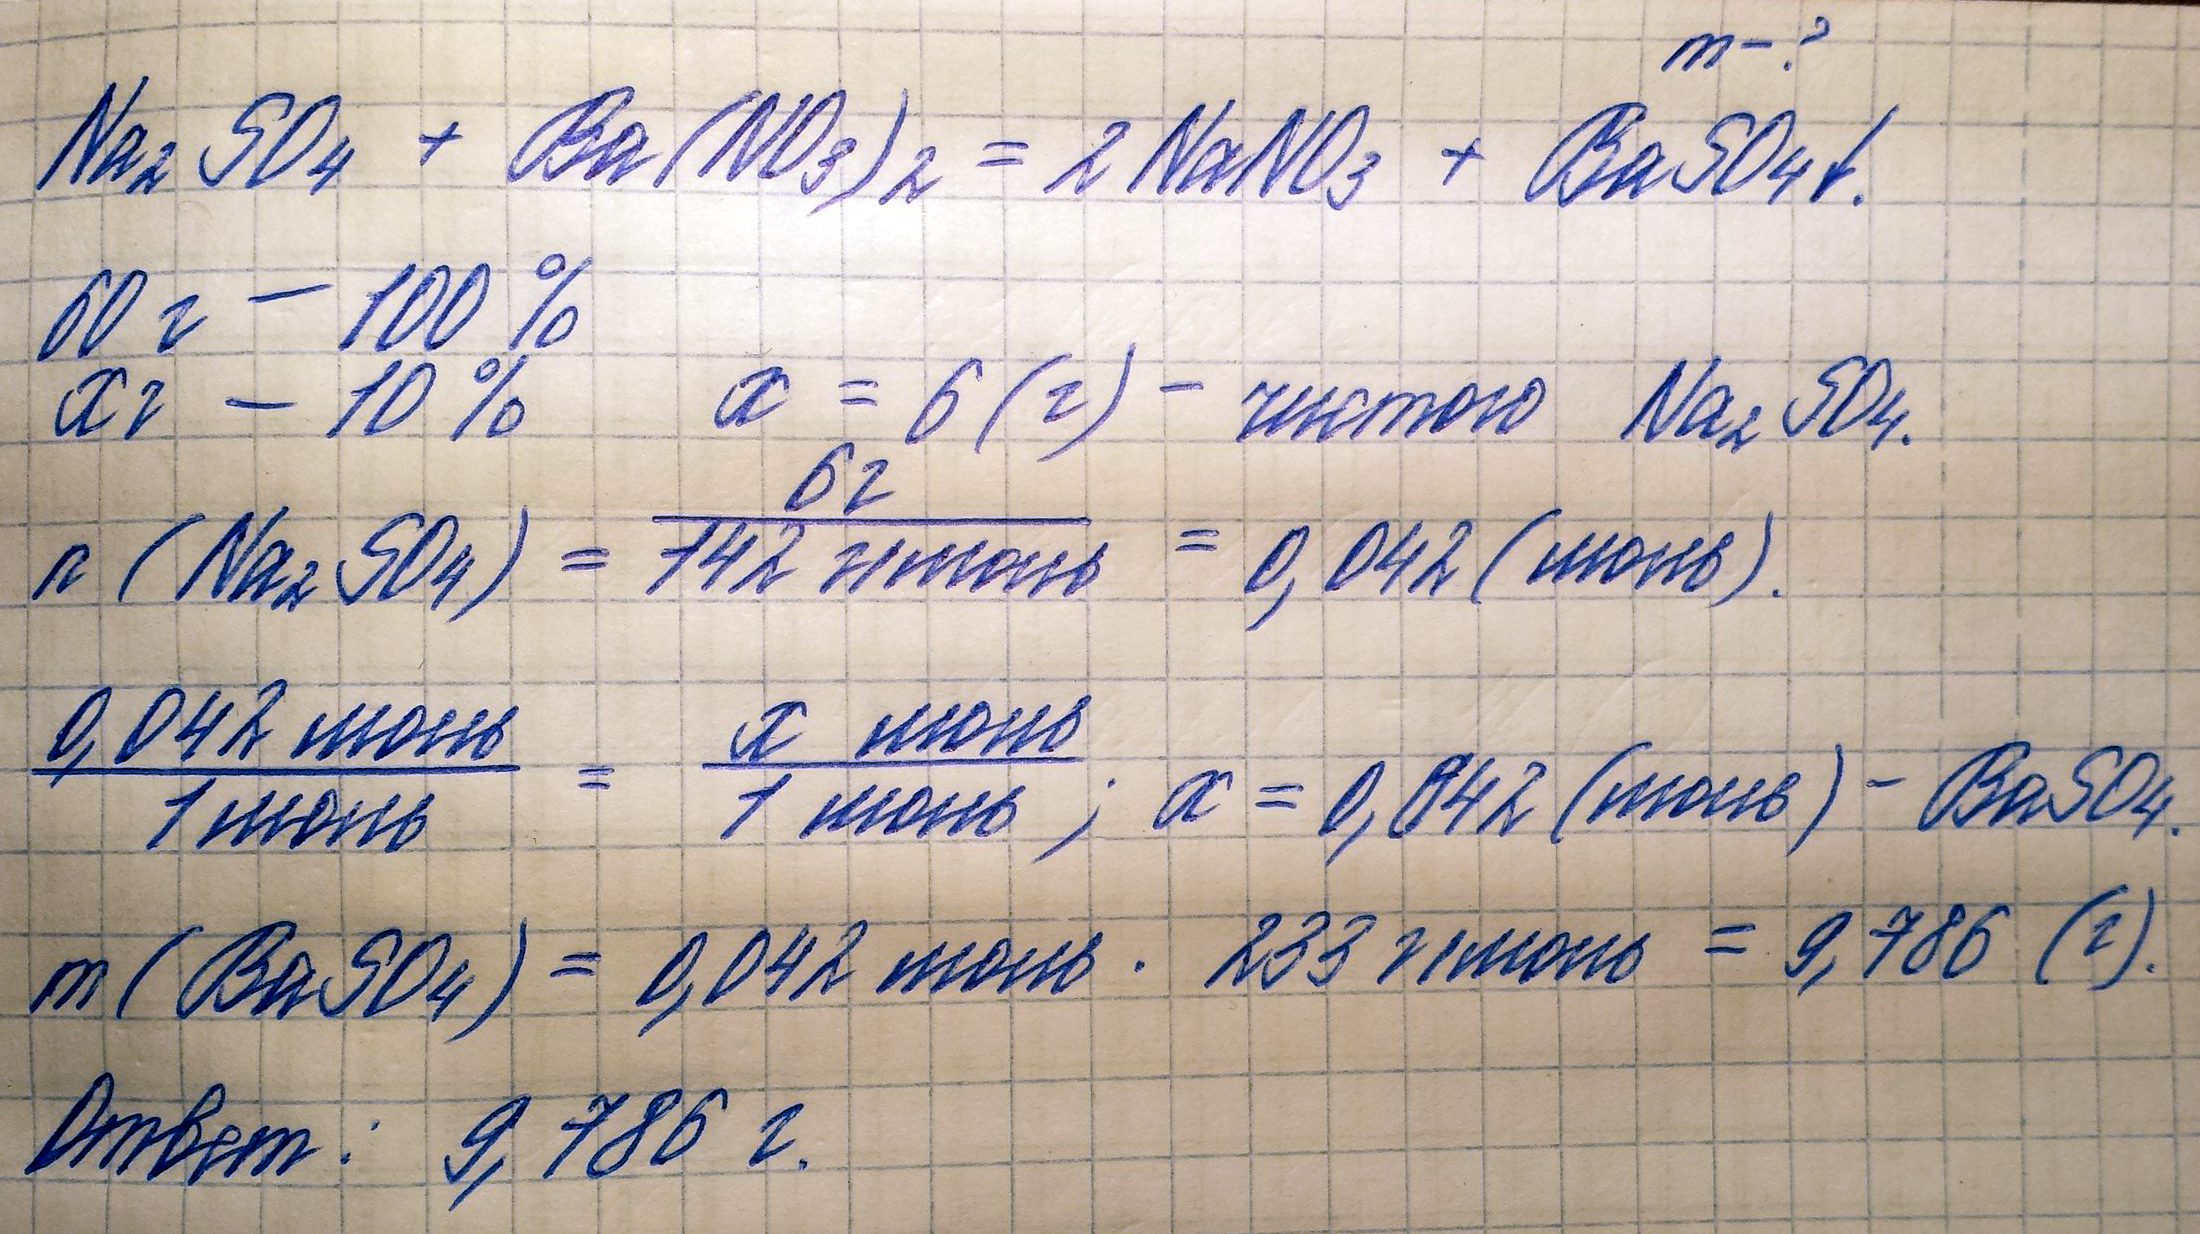 m-?
Na₂SO₄ + Ba(NO₃)₂ = 2NaNO₃ + BaSO₄↓.
60 г - 100%
x г - 10% x = 6 (г) - чистого Na₂SO₄.
n(Na₂SO₄) = 6г / 142 г/моль = 0,042 (моль).
0,042 моль / 1 моль = x моль / 1 моль ; x = 0,042 (моль) - BaSO₄.
m(BaSO₄) = 0,042 моль · 233 г/моль = 9,786 (г).
Ответ: 9,786 г.